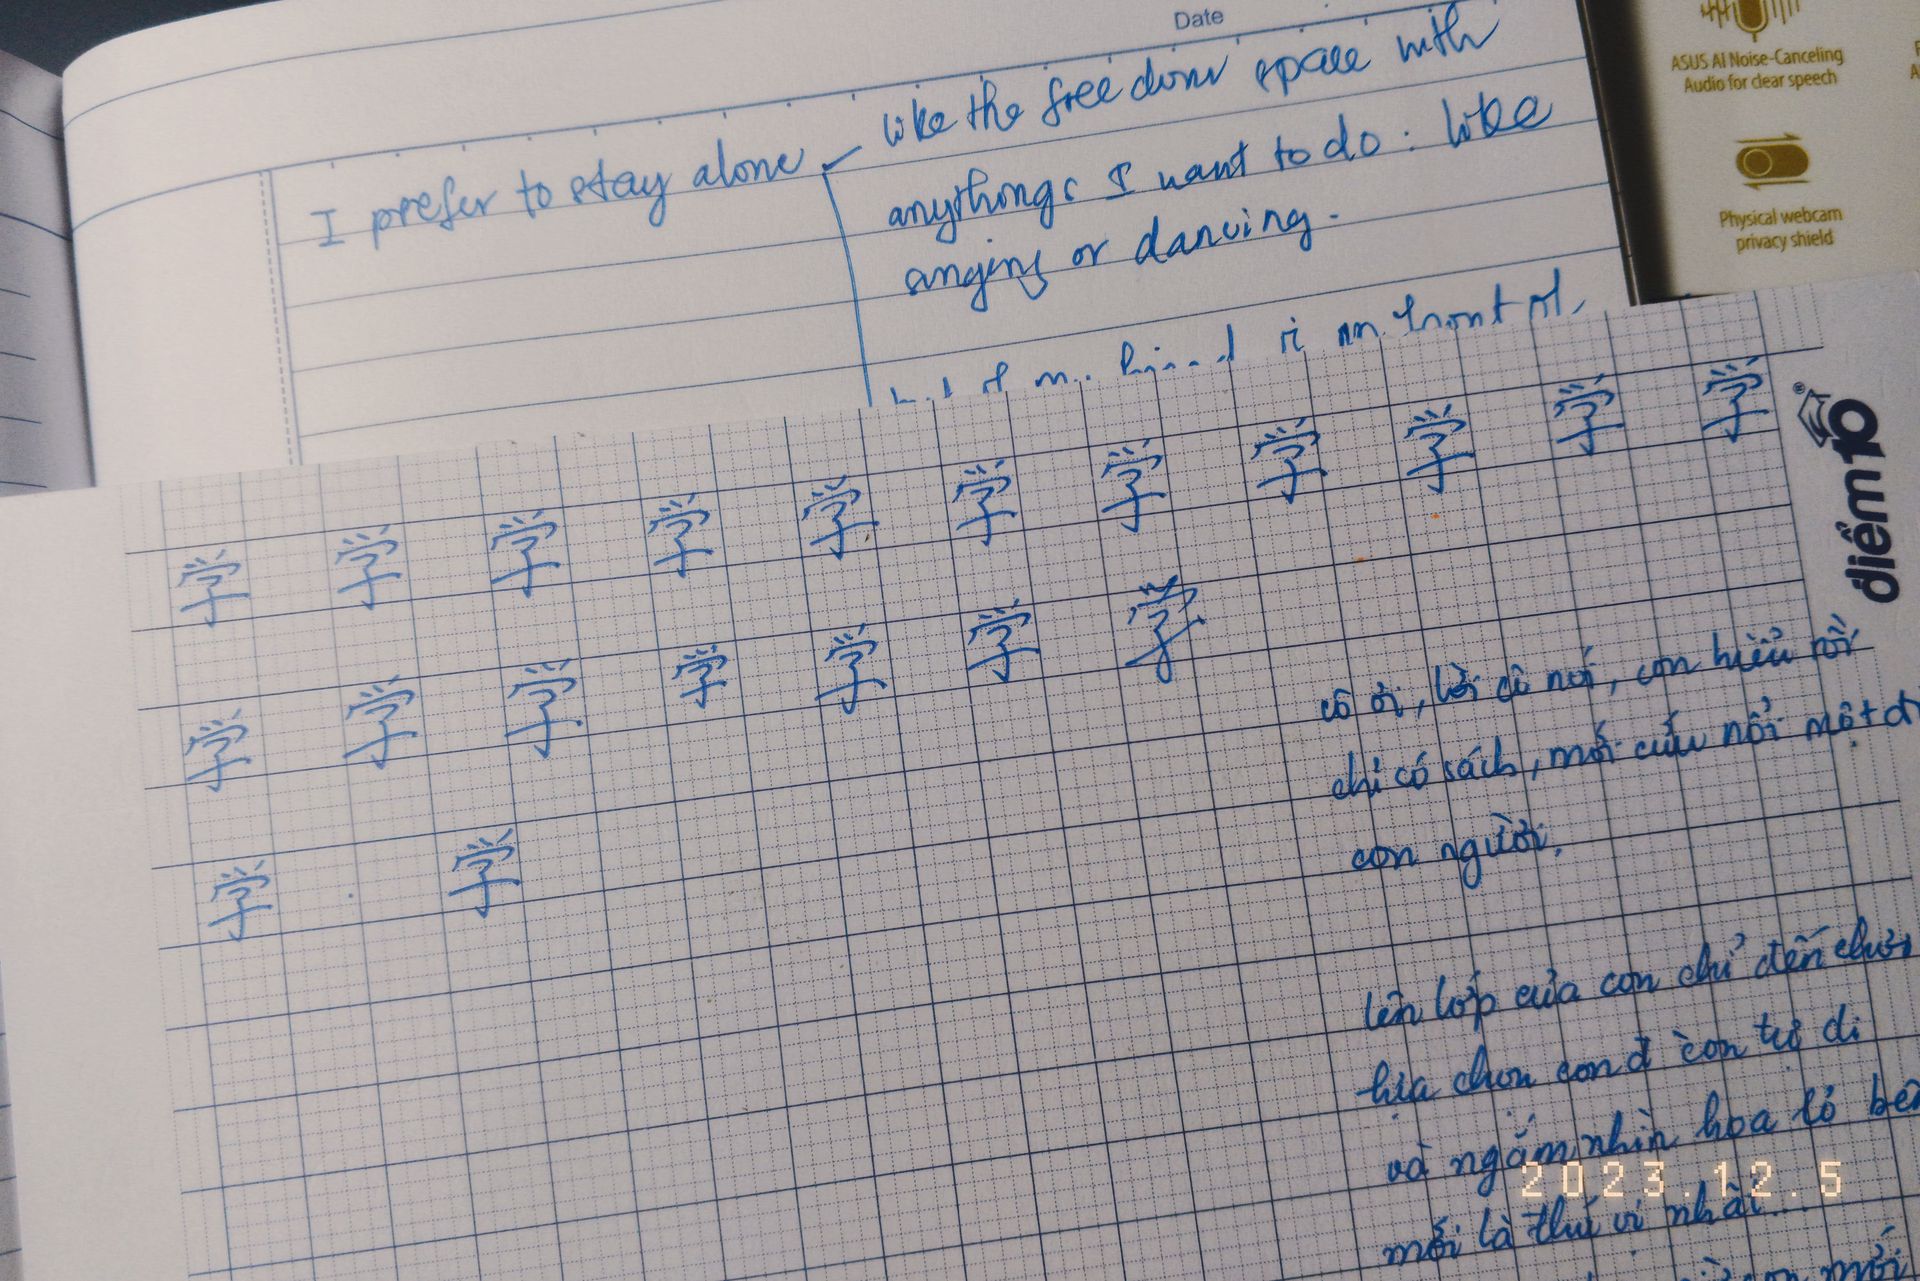 Date
I prefer to stay alone
like the freedom space with
anythings I want to do : like
singing or dancing.
ASUS AI Noise-Canceling
Audio for clear speech
Physical webcam
privacy shield
điểm10
学 学 学 学 学 学 学 学 学 学 学
学 学 学 学 学 学 学
学 学
cô ơi, lời cô nói, con hiểu rồi
chỉ có sách, mới cứu nổi một
con người.
lên lớp của con chỉ đến
lựa chọn con tự đi
và ngắm nhìn hoa bên
mới là thú vị
mới
2023.12.5